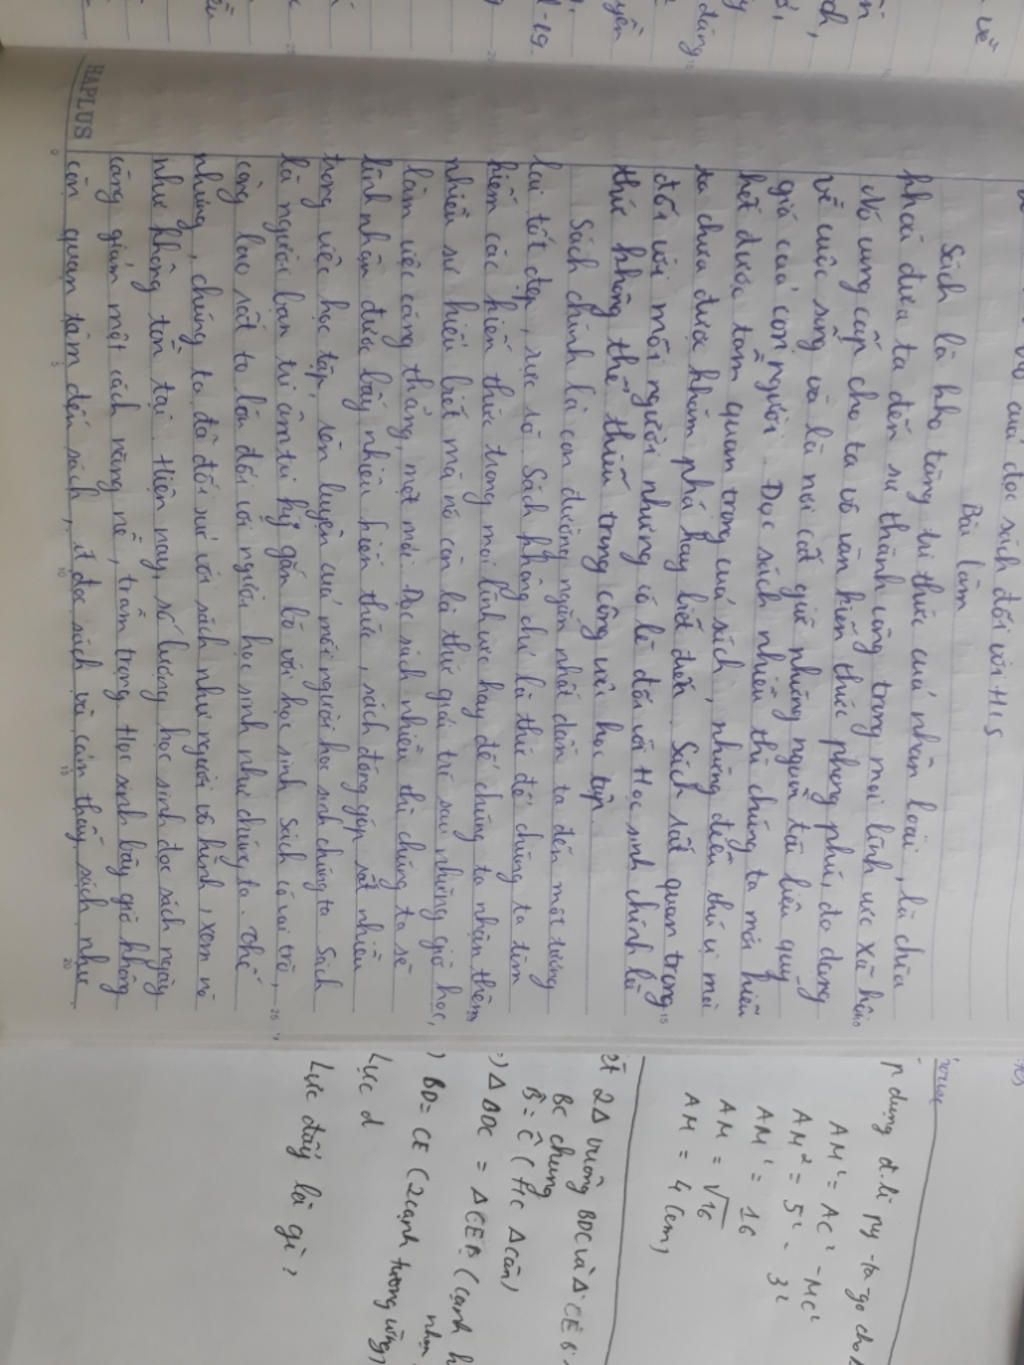 vai đọc sách đối với HS
Bài làm
Sách là kho tàng tri thức của nhân loại, là chìa
khoá đưa ta đến sự thành công trong mọi lĩnh vực xã hội.
Nó cung cấp cho ta vô vàn kiến thức phong phú, đa dạng
về cuộc sống và là nơi cất giữ những nguồn tài liệu quý
giá của con người. Đọc sách nhiều thì chúng ta mới hiểu
hết được tầm quan trong của sách, những điều thú vị mà
ta chưa được khám phá hay biết đến. Sách rất quan trong
đối với mỗi người nhưng có lẽ đối với Học sinh chính là
thứ không thể thiếu trong công việc học tập
Sách chính là con đường ngắn nhất dẫn ta đến một tương
lai tốt đẹp, rực rỡ. Sách không chỉ là thứ để chúng ta tìm
hiểu các kiến thức trong mọi lĩnh vực hay để chúng ta nhận thêm
nhiều sự hiểu biết mà nó còn là thứ giải trí sau những giờ học,
làm việc căng thẳng, mệt mỏi. Đọc sách nhiều thì chúng ta sẽ
lĩnh nhận được bấy nhiêu kiến thức, sách đóng góp rất nhiều
trong việc học tập, rèn luyện của mỗi người học sinh chúng ta. Sách
là người bạn tri âm tri kỷ gắn bó với học sinh. Sách có vai trò,
công lao rất to lớn đối với người học sinh như chúng ta. Thế
nhưng, chúng ta đã đối xử với sách như người vô hình, xem nó
như không tồn tại. Hiện nay, số lượng học sinh đọc sách ngày
càng giảm một cách nặng nề, trầm trọng. Học sinh bây giờ không
còn quan tâm đến sách, ít đọc sách và cảm thấy sách như
HAPLUS
p dụng đ.lí py-ta-go cho
AM² = AC² - MC²
AM² = 5² - 3²
AM² = 16
AM = √16
AM = 4 (cm)
ét 2Δ vuông BDC và Δ CEB
BC chung
B̂ = Ĉ (
Δ cân)
Δ BDC = Δ CEB (cạnh h
nhọn
BD = CE (2 cạnh tương ứng)
Lực d
Lực đẩy là gì?